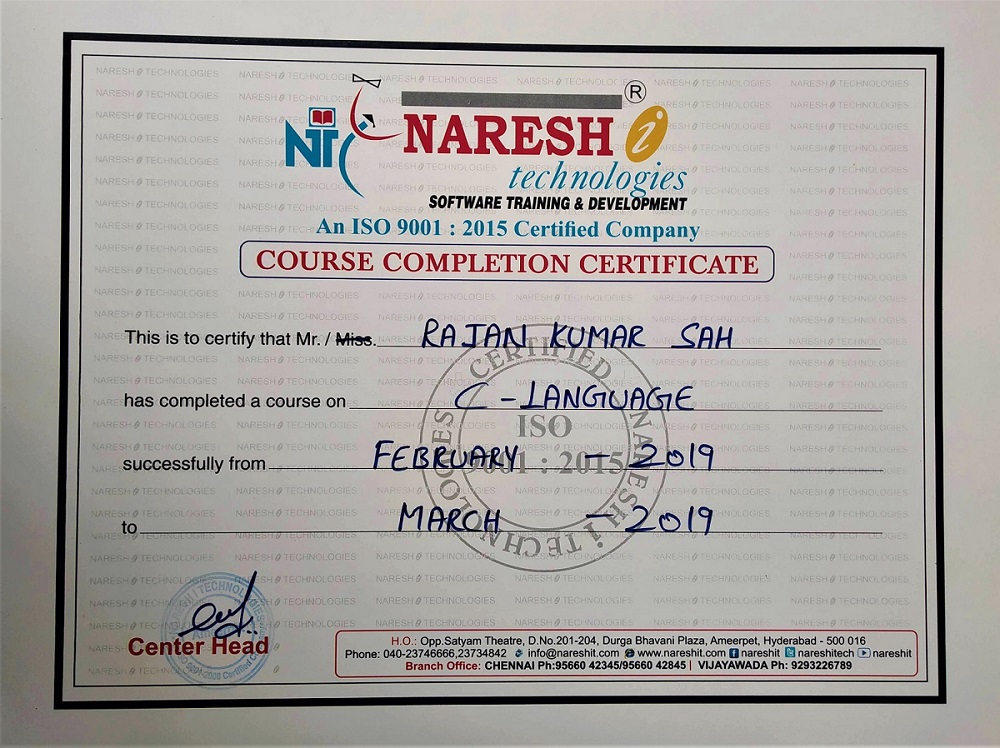 ®
NIT
NARESH i
technologies
SOFTWARE TRAINING & DEVELOPMENT
An ISO 9001 : 2015 Certified Company
COURSE COMPLETION CERTIFICATE
This is to certify that Mr. / Miss. RAJAN KUMAR SAH
has completed a course on C - LANGUAGE
successfully from FEBRUARY - 2019
to MARCH - 2019
CERTIFIED
NARESH i TECHNOLOGIES
ISO
9001 : 2015
Center Head
H.O.: Opp.Satyam Theatre, D.No.201-204, Durga Bhavani Plaza, Ameerpet, Hyderabad - 500 016
Phone: 040-23746666,23734842 info@nareshit.com www.nareshit.com nareshit nareshitech nareshit
Branch Office: CHENNAI Ph:95660 42345/95660 42845 | VIJAYAWADA Ph: 9293226789